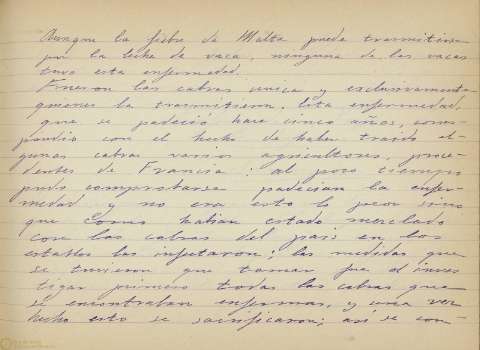 Aunque la fiebre de Malta puede trasmitirse
por la leche de vaca, ninguna de las vacas
tuvo esta enfermedad.
Fueron las cabras unica y exclusivamente
quienes la trasmitieron. Esta enfermedad,
que se padeció hace cinco años, coins-
pondio con el hecho de haber traido al-
gunas cabras varios agricultores, proce-
dentes de Francia: al poco tiempo
pudo comprobarse padecian la enfer-
medad y no era esto lo peor sino
que como habian estado mezclado
con las cabras del pais en los
establos las infectaron; las medidas que
se tuvieron que tomar fue el inves
tigar primero todas las cabras que
se encontraban enfermas, y una vez
hecho esto se sacrificaron; asi se con-